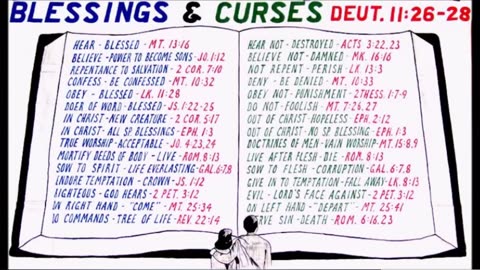 BLESSINGS & CURSES DEUT. 11:26-28
HEAR - BLESSED - MT. 13:16
BELIEVE - POWER TO BECOME SONS - JO. 1:12
REPENTANCE TO SALVATION - 2 COR. 7:10
CONFESS - BE CONFESSED - MT. 10:32
OBEY - BLESSED - LK. 11:28
DOER OF WORD - BLESSED - JS. 1:22-25
IN CHRIST - NEW CREATURE - 2 COR. 5:17
IN CHRIST - ALL SP. BLESSINGS - EPH. 1:3
TRUE WORSHIP - ACCEPTABLE - JO. 4:23,24
MORTIFY DEEDS OF BODY - LIVE - ROM. 8:13
SOW TO SPIRIT - LIFE EVERLASTING - GAL. 6:7,8
ENDURE TEMPTATION - CROWN - JS. 1:12
RIGTEOUS - GOD HEARS - 2 PET. 3:12
ON RIGHT HAND - "COME" - MT. 25:34
10 COMMANDS - TREE OF LIFE - REV. 22:14
HEAR NOT - DESTROYED - ACTS 3:22,23
BELIEVE NOT - DAMNED - MK. 16:16
NOT REPENT - PERISH - LK. 13:3
DENY - BE DENIED - MT. 10:33
OBEY NOT - PUNISHMENT - 2 THESS. 1:7-9
DO NOT - FOOLISH - MT. 7:26,27
OUT OF CHRIST - HOPELESS - EPH. 2:12
OUT OF CHRIST - NO SP. BLESSING - EPH. 1:3
DOCTRINES OF MEN - VAIN WORSHIP - MT. 15:8,9
LIVE AFTER FLESH - DIE - ROM. 8:13
SOW TO FLESH - CORRUPTION - GAL. 6:7,8
GIVE IN TO TEMPTATION - FALL AWAY - LK. 8:13
EVIL - LORD'S FACE AGAINST - 2 PET. 3:12
ON LEFT HAND - "DEPART" - MT. 25:41
SERVE SIN - DEATH - ROM. 6:16,23